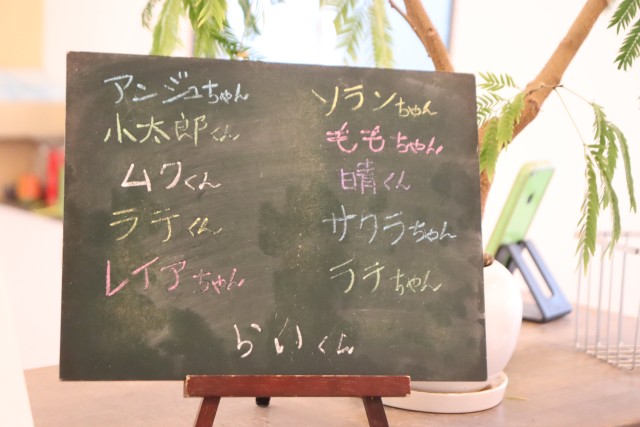 アンジュちゃん
小太郎くん
ムクくん
ラテくん
レイアちゃん
ソランちゃん
ももちゃん
晴くん
サクラちゃん
ラテちゃん
らいくん